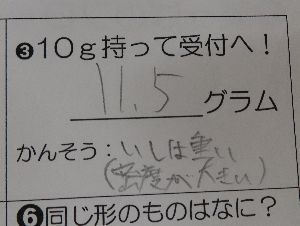 ❸10g持って受付へ！
11.5グラム
かんそう：いしは重い
(密度が大きい)
❻同じ形のものはなに？